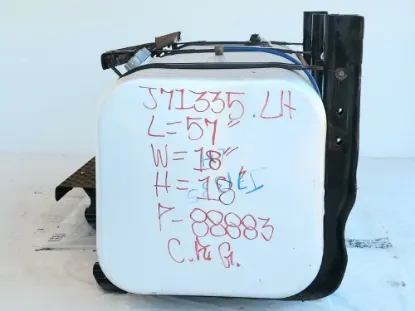 J71335.LH
L=57"
W=18"
H=18"
P=88883